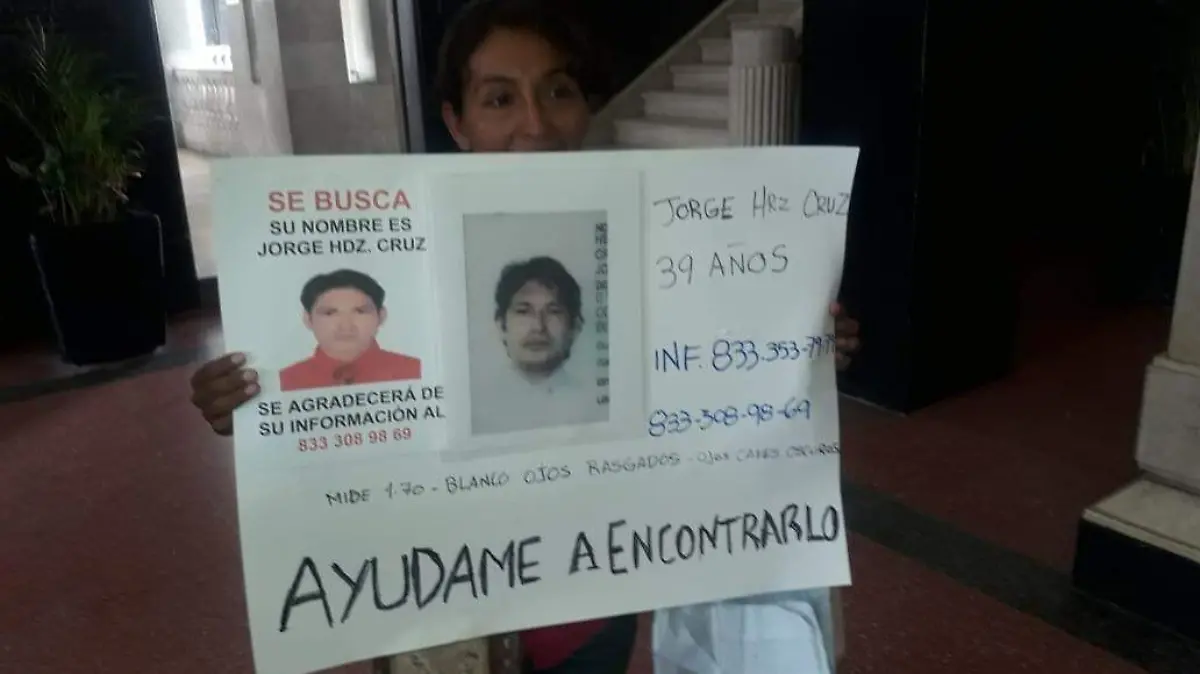 SE BUSCA
SU NOMBRE ES
JORGE HDZ. CRUZ
SE AGRADECERÁ DE
SU INFORMACIÓN AL
833 308 98 69
JORGE HRZ CRUZ
39 AÑOS
INF. 833-353-79-79
833-308-98-69
MIDE 1.70 - BLANCO OJOS RASGADOS - OJOS CAFES OSCUROS
AYUDAME A ENCONTRARLO